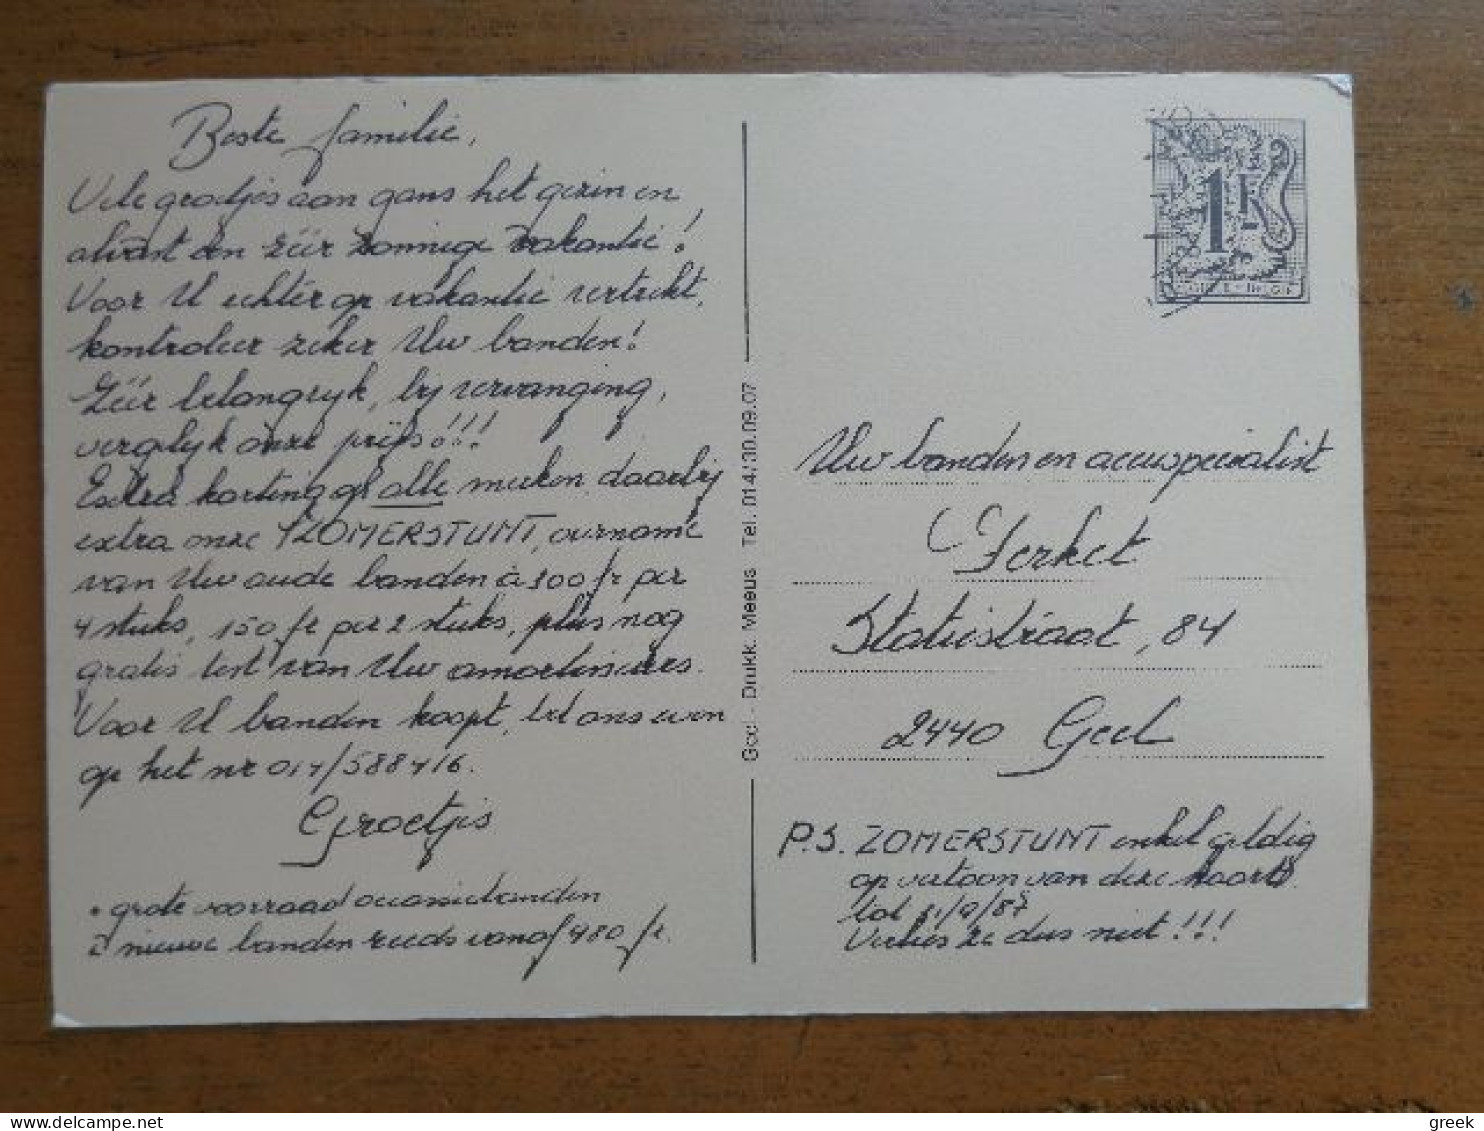 Beste familie,
Vele groetjes aan gans het gezin en
alvast een zéér zonnige vakantie!
Voor U echter op vakantie vertrekt,
kontroleer zeker Uw banden!
Zéér belangrijk, bij vervanging,
vergelijk onze prijs!!!
Extra korting op alle merken daarbij
extra onze ZOMERSTUNT, overname
van Uw oude banden à 300 fr per
4 stuks, 150 fr per 2 stuks, plus nog
gratis test van Uw amortisseurs.
Voor U banden koopt, bel ons even
op het nr 014/588416.
Groetjes
• grote voorraad occasiebanden
nieuwe banden reeds vanaf 980 fr.
Geel - Drukk. Meeus Tel. 014/30.09.07
1F
BELGIQUE - BELGIË
Uw banden en accuspecialist
Ferket
Statiestraat, 84
2440 Geel
P.S. ZOMERSTUNT enkel geldig
op vertoon van deze kaart
tot 31/8/87
Verlies ze dus niet!!!
greek
www.delcampe.net
greek